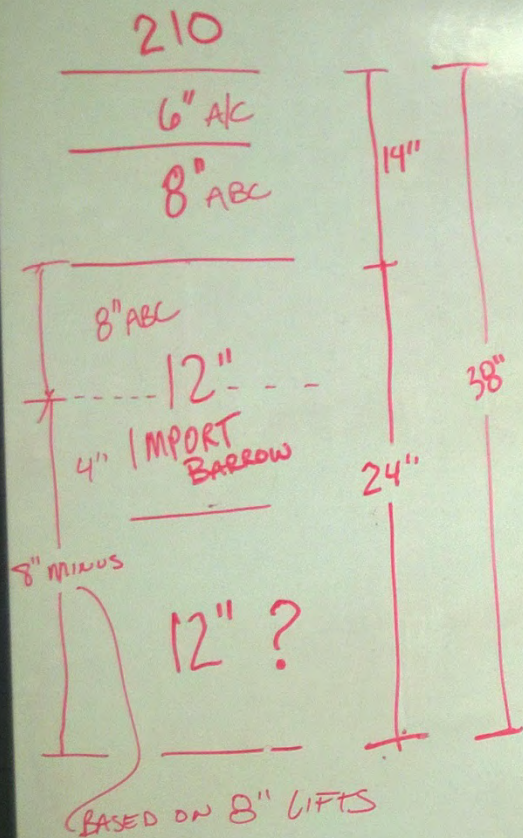 210
6" A/C
14"
8" ABC
8" ABC
12"
38"
4" IMPORT
BARROW
24"
8" MINUS
12" ?
BASED ON 8" LIFTS